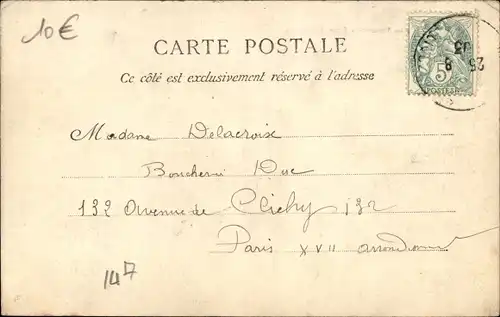 10€
CARTE POSTALE
Ce côté est exclusivement réservé à l'adresse
5
POSTES
25 8
03
Madame Delacroix
Boucherie Duc
132 Avenue de Clichy 132
Paris XVII arrond
14